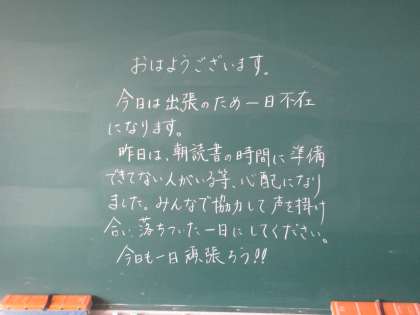 おはようございます。
今日は出張のため一日不在
になります。
昨日は、朝読書の時間に準備
できてない人がいる等、心配になり
ました。みんなで協力して声を掛け
合い落ちついた一日にしてください。
今日も一日頑張ろう!!